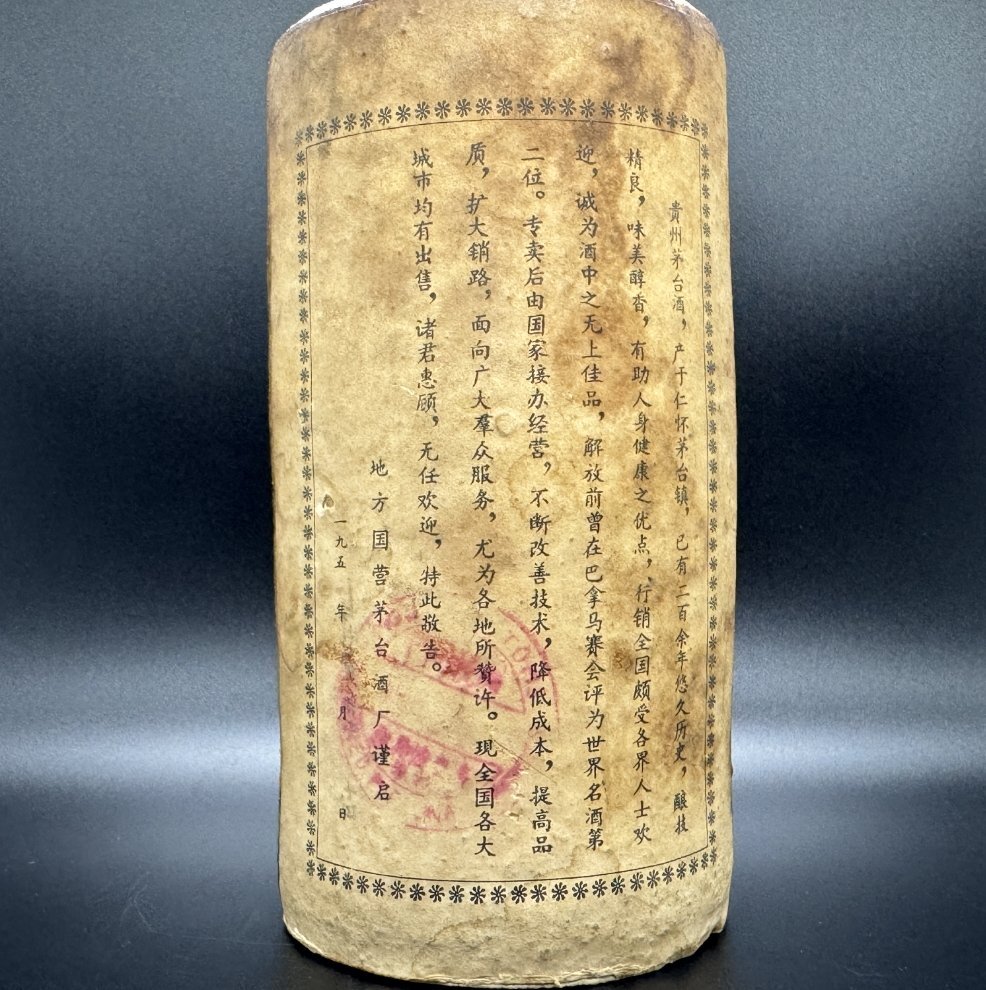 贵州茅台酒，产于仁怀茅台镇，已有二百余年悠久历史，酿技
精良，味美醇香，有助人身健康之优点，行销全国颇受各界人士欢
迎，诚为酒中之无上佳品，解放前曾在巴拿马赛会评为世界名酒第
二位。专卖后由国家接办经营，不断改善技术，降低成本，提高品
质，扩大销路，面向广大羣众服务，尤为各地所赞许。现全国各大
城市均有出售，诸君惠顾，无任欢迎，特此敬告。
地方国营茅台酒厂谨启
一九五 年 月 日